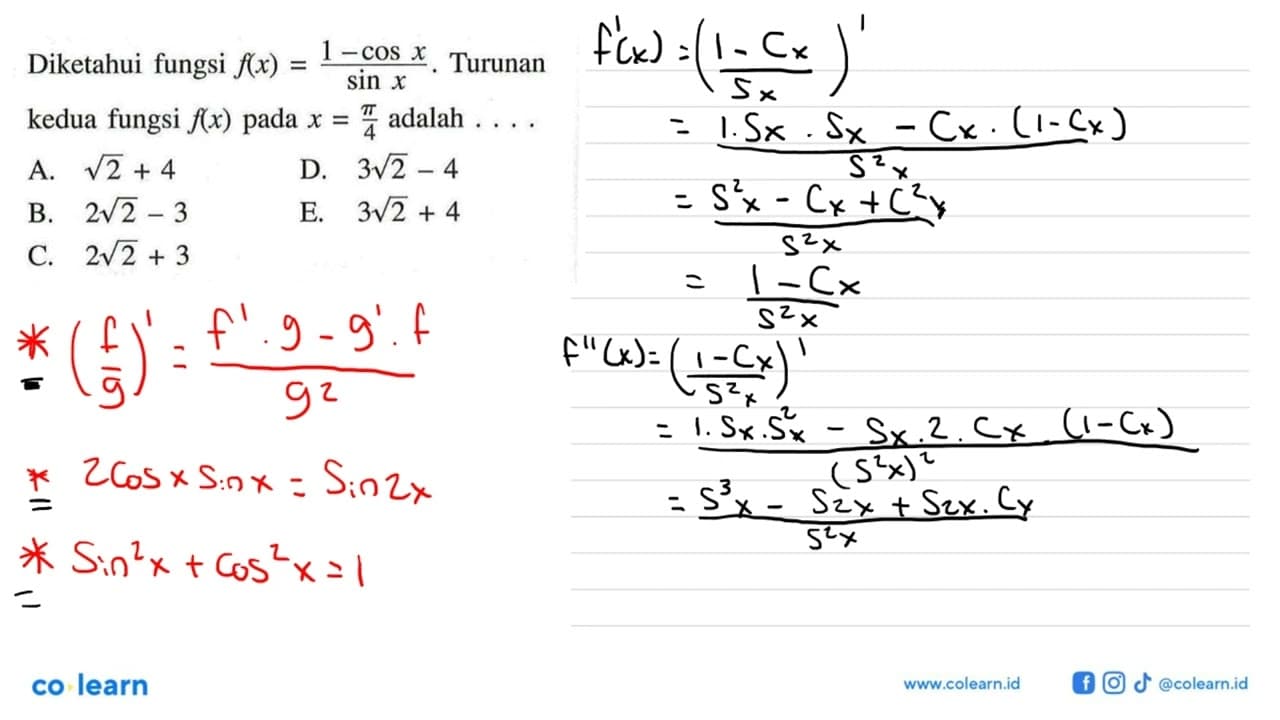 Diketahui fungsi f(x) = (1 – cos x)/(sin x). Turunan
kedua fungsi f(x) pada x = π/4 adalah . . . .
A. √2 + 4
B. 2√2 – 3
C. 2√2 + 3
D. 3√2 – 4
E. 3√2 + 4
* (f/g)' = (f'.g - g'.f)/g²
* 2cos x sin x = Sin 2x
* Sin²x + Cos²x = 1
f'(x) = ((1 - Cx)/Sx)'
= (1.Sx . Sx - Cx . (1 - Cx))/S²x
= (S²x - Cx + C²x)/S²x
= (1 - Cx)/S²x
f''(x) = ((1 - Cx)/S²x)'
= (1. Sx . S²x - Sx . 2 . Cx . (1 - Cx))/(S²x)²
= (S³x - S2x + S2x . Cx)/S²x
co learn
www.colearn.id
@colearn.id